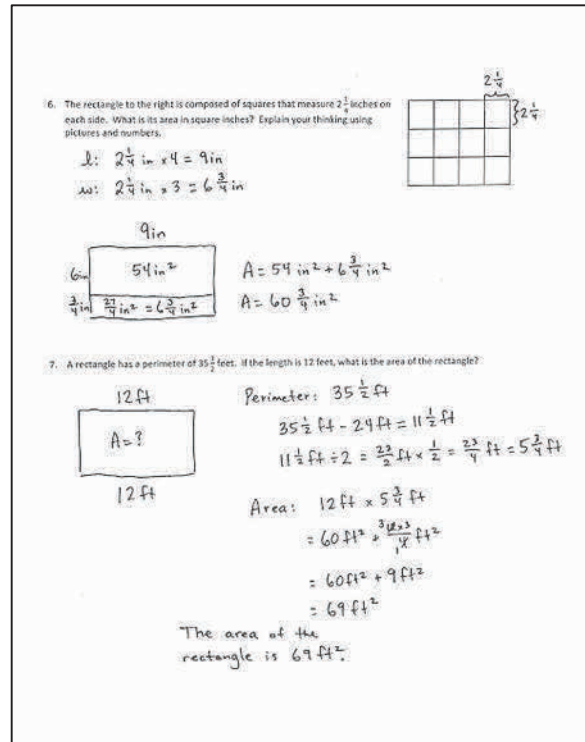 2 1/4
6. The rectangle to the right is composed of squares that measure 2 1/4 inches on
each side. What is its area in square inches? Explain your thinking using
pictures and numbers.
2 1/4
l: 2 1/4 in x 4 = 9in
w: 2 1/4 in x 3 = 6 3/4 in
9in
6in 54in²
3/4 in 27/4 in² = 6 3/4 in²
A = 54 in² + 6 3/4 in²
A = 60 3/4 in²
7. A rectangle has a perimeter of 35 1/2 feet. If the length is 12 feet, what is the area of the rectangle?
12 ft
A = ?
12 ft
Perimeter: 35 1/2 ft
35 1/2 ft - 24 ft = 11 1/2 ft
11 1/2 ft ÷ 2 = 23/2 ft x 1/2 = 23/4 ft = 5 3/4 ft
Area: 12 ft x 5 3/4 ft
= 60 ft² + 3 12x3/4 1 ft²
= 60ft² + 9 ft²
= 69 ft²
The area of the
rectangle is 69 ft².